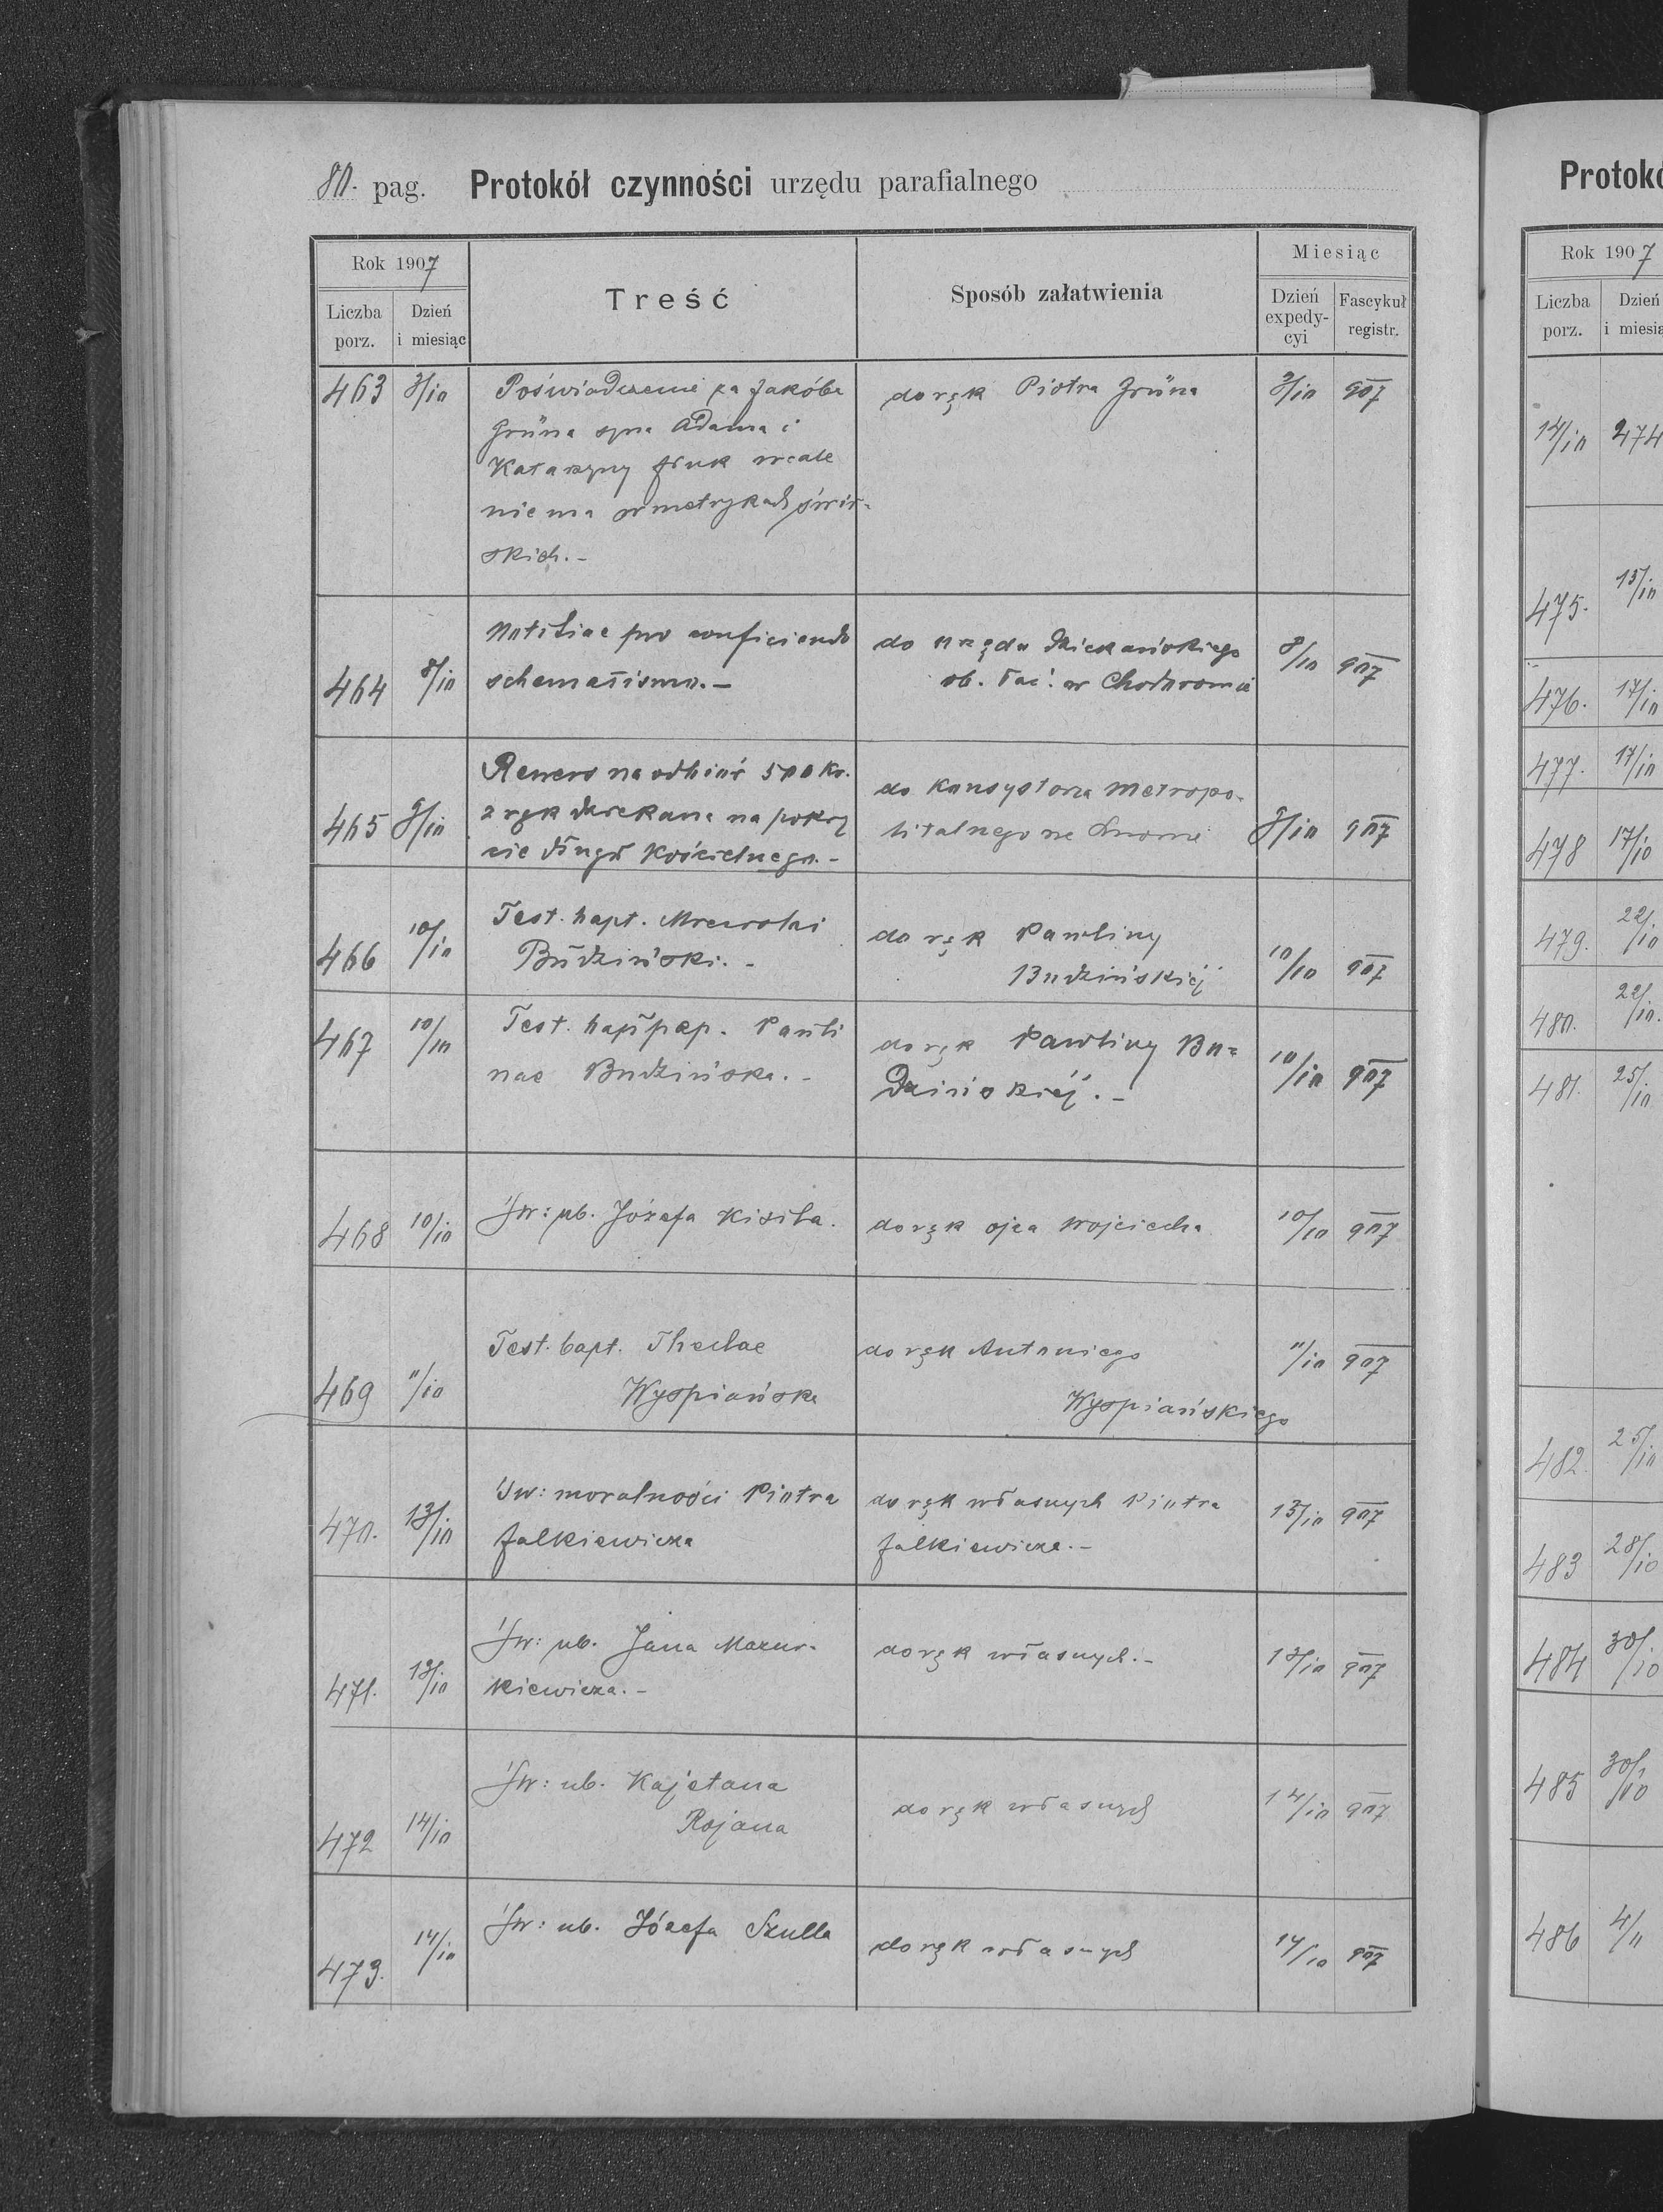 80. pag. Protokół czynności urzędu parafialnego
Rok 1907
Liczba porz.
Dzień i miesiąc
Treść
Sposób załatwienia
Miesiąc
Dzień expedycyi
Fascykuł registr.
463 3/10 Poświadczenie za Jakóba do ręk Piotra Grüna 3/10 907
Grüna syna Adama i
Katarzyny wcale
niema w metrykach świr-
skich.-
464 8/10 Notitiae pro conficiendo do urzędu dziekańskiego 8/10 907
schematismo.- ob. łać: w Chodorowie
465 9/10 Rewers na odbiór 500 Kr. do Konsystorza metropo- 9/10 907
z ręk dziekana na pokry litalnego we Lwowie
cie długu Kościelnego.-
466 10/10 Test. bapt. do ręk Pawliny 10/10 907
Budziński.- Budzińskiéj
467 10/10 Test. Pauli do ręk Pawliny Bu= 10/10 907
nae Budzińska.- dzińskiéj.-
468 10/10 Św: ub. Józefa Kisila. do ręk ojca Wojciecha 10/10 907
469 11/10 Test. bapt. Theclae do ręk Antoniego 11/10 907
Wyspiańska Wyspiańskiego
470. 13/10 Św: moralności Piotra do ręk własnych Piotra 13/10 907
Falkiewicza Falkiewicza.-
471. 13/10 Św: ub. Jana Mazur- do ręk własnych.- 13/10 907
kiewicza.-
472 14/10 Św: ub. Kajetana do ręk własnych 14/10 907
Rojana
473. 14/10 Św: ub. Józefa Szulla do ręk własnych 14/10 907
Protokó
Rok 1907
Liczba porz.
Dzień i miesią
14/10 474
475. 15/10
476. 17/10
477. 17/10
478 17/10
479. 22/10
480. 22/10.
481. 25/10
482. 25/10
483 28/10
484 30/10
485 30/10
486 4/11